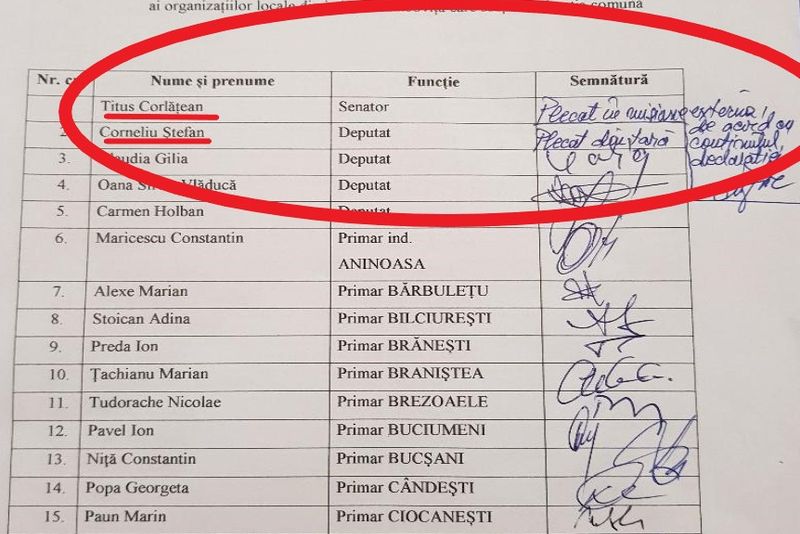 ai organizațiilor locale
comună
Nr. Nume și prenume Funcție Semnătură
Titus Corlățean Senator Plecat în misiune externă,
de acord cu
conținutul
declarației
2. Corneliu Ștefan Deputat Plecat din țară
3. Claudia Gilia Deputat
4. Oana Vlăducă Deputat
5. Carmen Holban Deputat
6. Maricescu Constantin Primar ind.
ANINOASA
7. Alexe Marian Primar BĂRBULEȚU
8. Stoican Adina Primar BILCIUREȘTI
9. Preda Ion Primar BRĂNEȘTI
10. Țachianu Marian Primar BRANIȘTEA
11. Tudorache Nicolae Primar BREZOAELE
12. Pavel Ion Primar BUCIUMENI
13. Niță Constantin Primar BUCȘANI
14. Popa Georgeta Primar CÂNDEȘTI
15. Paun Marin Primar CIOCANEȘTI